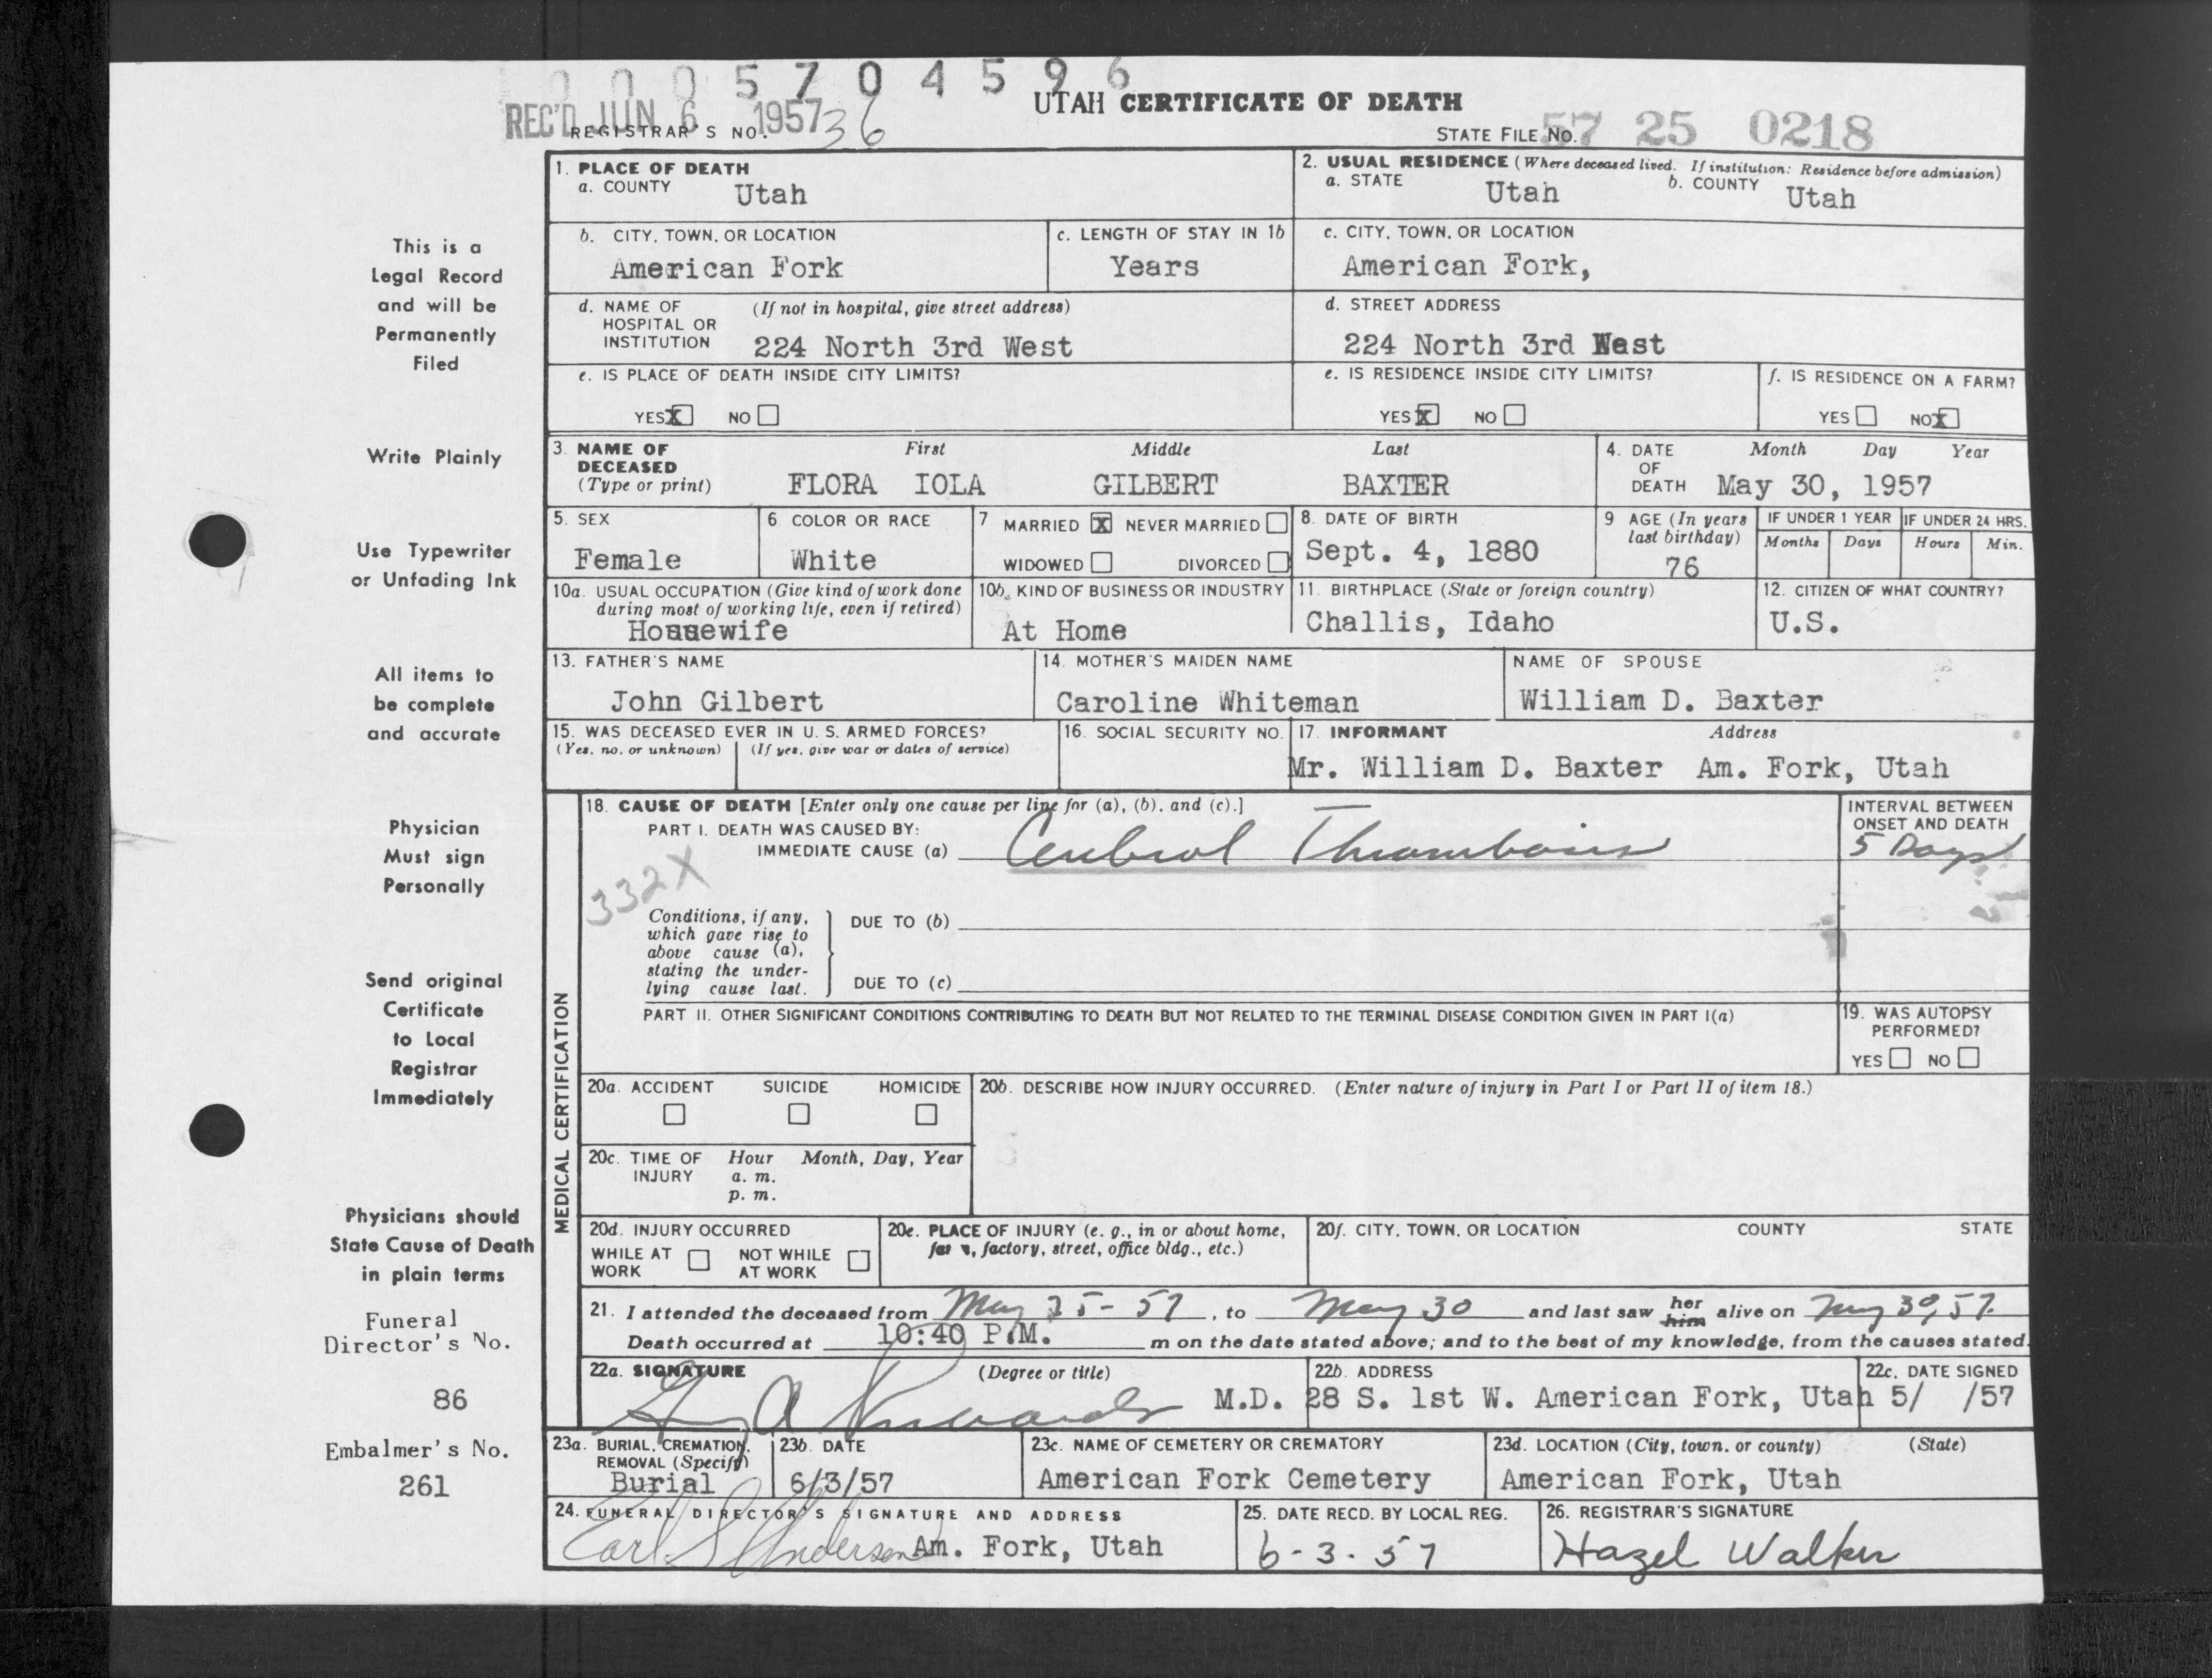 0005704596
REC'D JUN 6 1957
UTAH CERTIFICATE OF DEATH
REGISTRAR'S NO. 36
STATE FILE NO. 57 25 0218
This is a
Legal Record
and will be
Permanently
Filed
Write Plainly
Use Typewriter
or Unfading Ink
All items to
be complete
and accurate
Physician
Must sign
Personally
Send original
Certificate
to Local
Registrar
Immediately
Physicians should
State Cause of Death
in plain terms
Funeral
Director's No.
86
Embalmer's No.
261
1. PLACE OF DEATH
a. COUNTY
Utah
2. USUAL RESIDENCE (Where deceased lived. If institution: Residence before admission)
a. STATE
Utah
b. COUNTY
Utah
b. CITY, TOWN, OR LOCATION
American Fork
c. LENGTH OF STAY IN 1b
Years
c. CITY, TOWN, OR LOCATION
American Fork,
d. NAME OF HOSPITAL OR INSTITUTION
(If not in hospital, give street address)
224 North 3rd West
d. STREET ADDRESS
224 North 3rd West
e. IS PLACE OF DEATH INSIDE CITY LIMITS?
YES X NO
e. IS RESIDENCE INSIDE CITY LIMITS?
YES X NO
f. IS RESIDENCE ON A FARM?
YES NO X
3. NAME OF DECEASED (Type or print)
First Middle Last
FLORA IOLA GILBERT BAXTER
4. DATE OF DEATH
Month Day Year
May 30, 1957
5. SEX
Female
6. COLOR OR RACE
White
7 MARRIED X NEVER MARRIED
WIDOWED DIVORCED
8. DATE OF BIRTH
Sept. 4, 1880
9 AGE (In years last birthday)
76
IF UNDER 1 YEAR
Months Days
IF UNDER 24 HRS.
Hours Min.
10a. USUAL OCCUPATION (Give kind of work done
during most of working life, even if retired)
Housewife
10b. KIND OF BUSINESS OR INDUSTRY
At Home
11. BIRTHPLACE (State or foreign country)
Challis, Idaho
12. CITIZEN OF WHAT COUNTRY?
U.S.
13. FATHER'S NAME
John Gilbert
14. MOTHER'S MAIDEN NAME
Caroline Whiteman
NAME OF SPOUSE
William D. Baxter
15. WAS DECEASED EVER IN U. S. ARMED FORCES?
(Yes, no, or unknown) (If yes, give war or dates of service)
16. SOCIAL SECURITY NO.
17. INFORMANT Address
Mr. William D. Baxter Am. Fork, Utah
MEDICAL CERTIFICATION
18. CAUSE OF DEATH [Enter only one cause per line for (a), (b), and (c).]
PART I. DEATH WAS CAUSED BY:
IMMEDIATE CAUSE (a) Cerebral Thrombosis
INTERVAL BETWEEN
ONSET AND DEATH
5 Days
332X
Conditions, if any,
which gave rise to
above cause (a),
stating the under-
lying cause last.
DUE TO (b)
DUE TO (c)
PART II. OTHER SIGNIFICANT CONDITIONS CONTRIBUTING TO DEATH BUT NOT RELATED TO THE TERMINAL DISEASE CONDITION GIVEN IN PART I(a)
19. WAS AUTOPSY
PERFORMED?
YES NO
20a. ACCIDENT SUICIDE HOMICIDE
20b. DESCRIBE HOW INJURY OCCURRED. (Enter nature of injury in Part I or Part II of item 18.)
20c. TIME OF INJURY
Hour Month, Day, Year
a. m.
p. m.
20d. INJURY OCCURRED
WHILE AT WORK NOT WHILE AT WORK
20e. PLACE OF INJURY (e. g., in or about home,
factory, street, office bldg., etc.)
20f. CITY, TOWN, OR LOCATION COUNTY STATE
21. I attended the deceased from May 25-57, to May 30 and last saw her him alive on May 30, 57.
Death occurred at 10:40 P.M. m on the date stated above; and to the best of my knowledge, from the causes stated.
22a. SIGNATURE (Degree or title)
M.D.
22b. ADDRESS
28 S. 1st W. American Fork, Utah
22c. DATE SIGNED
5/ /57
23a. BURIAL, CREMATION,
REMOVAL (Specify)
Burial
23b. DATE
6/3/57
23c. NAME OF CEMETERY OR CREMATORY
American Fork Cemetery
23d. LOCATION (City, town, or county) (State)
American Fork, Utah
24. FUNERAL DIRECTOR'S SIGNATURE AND ADDRESS
Earl S Anderson Am. Fork, Utah
25. DATE RECD. BY LOCAL REG.
6-3-57
26. REGISTRAR'S SIGNATURE
Hazel Walker